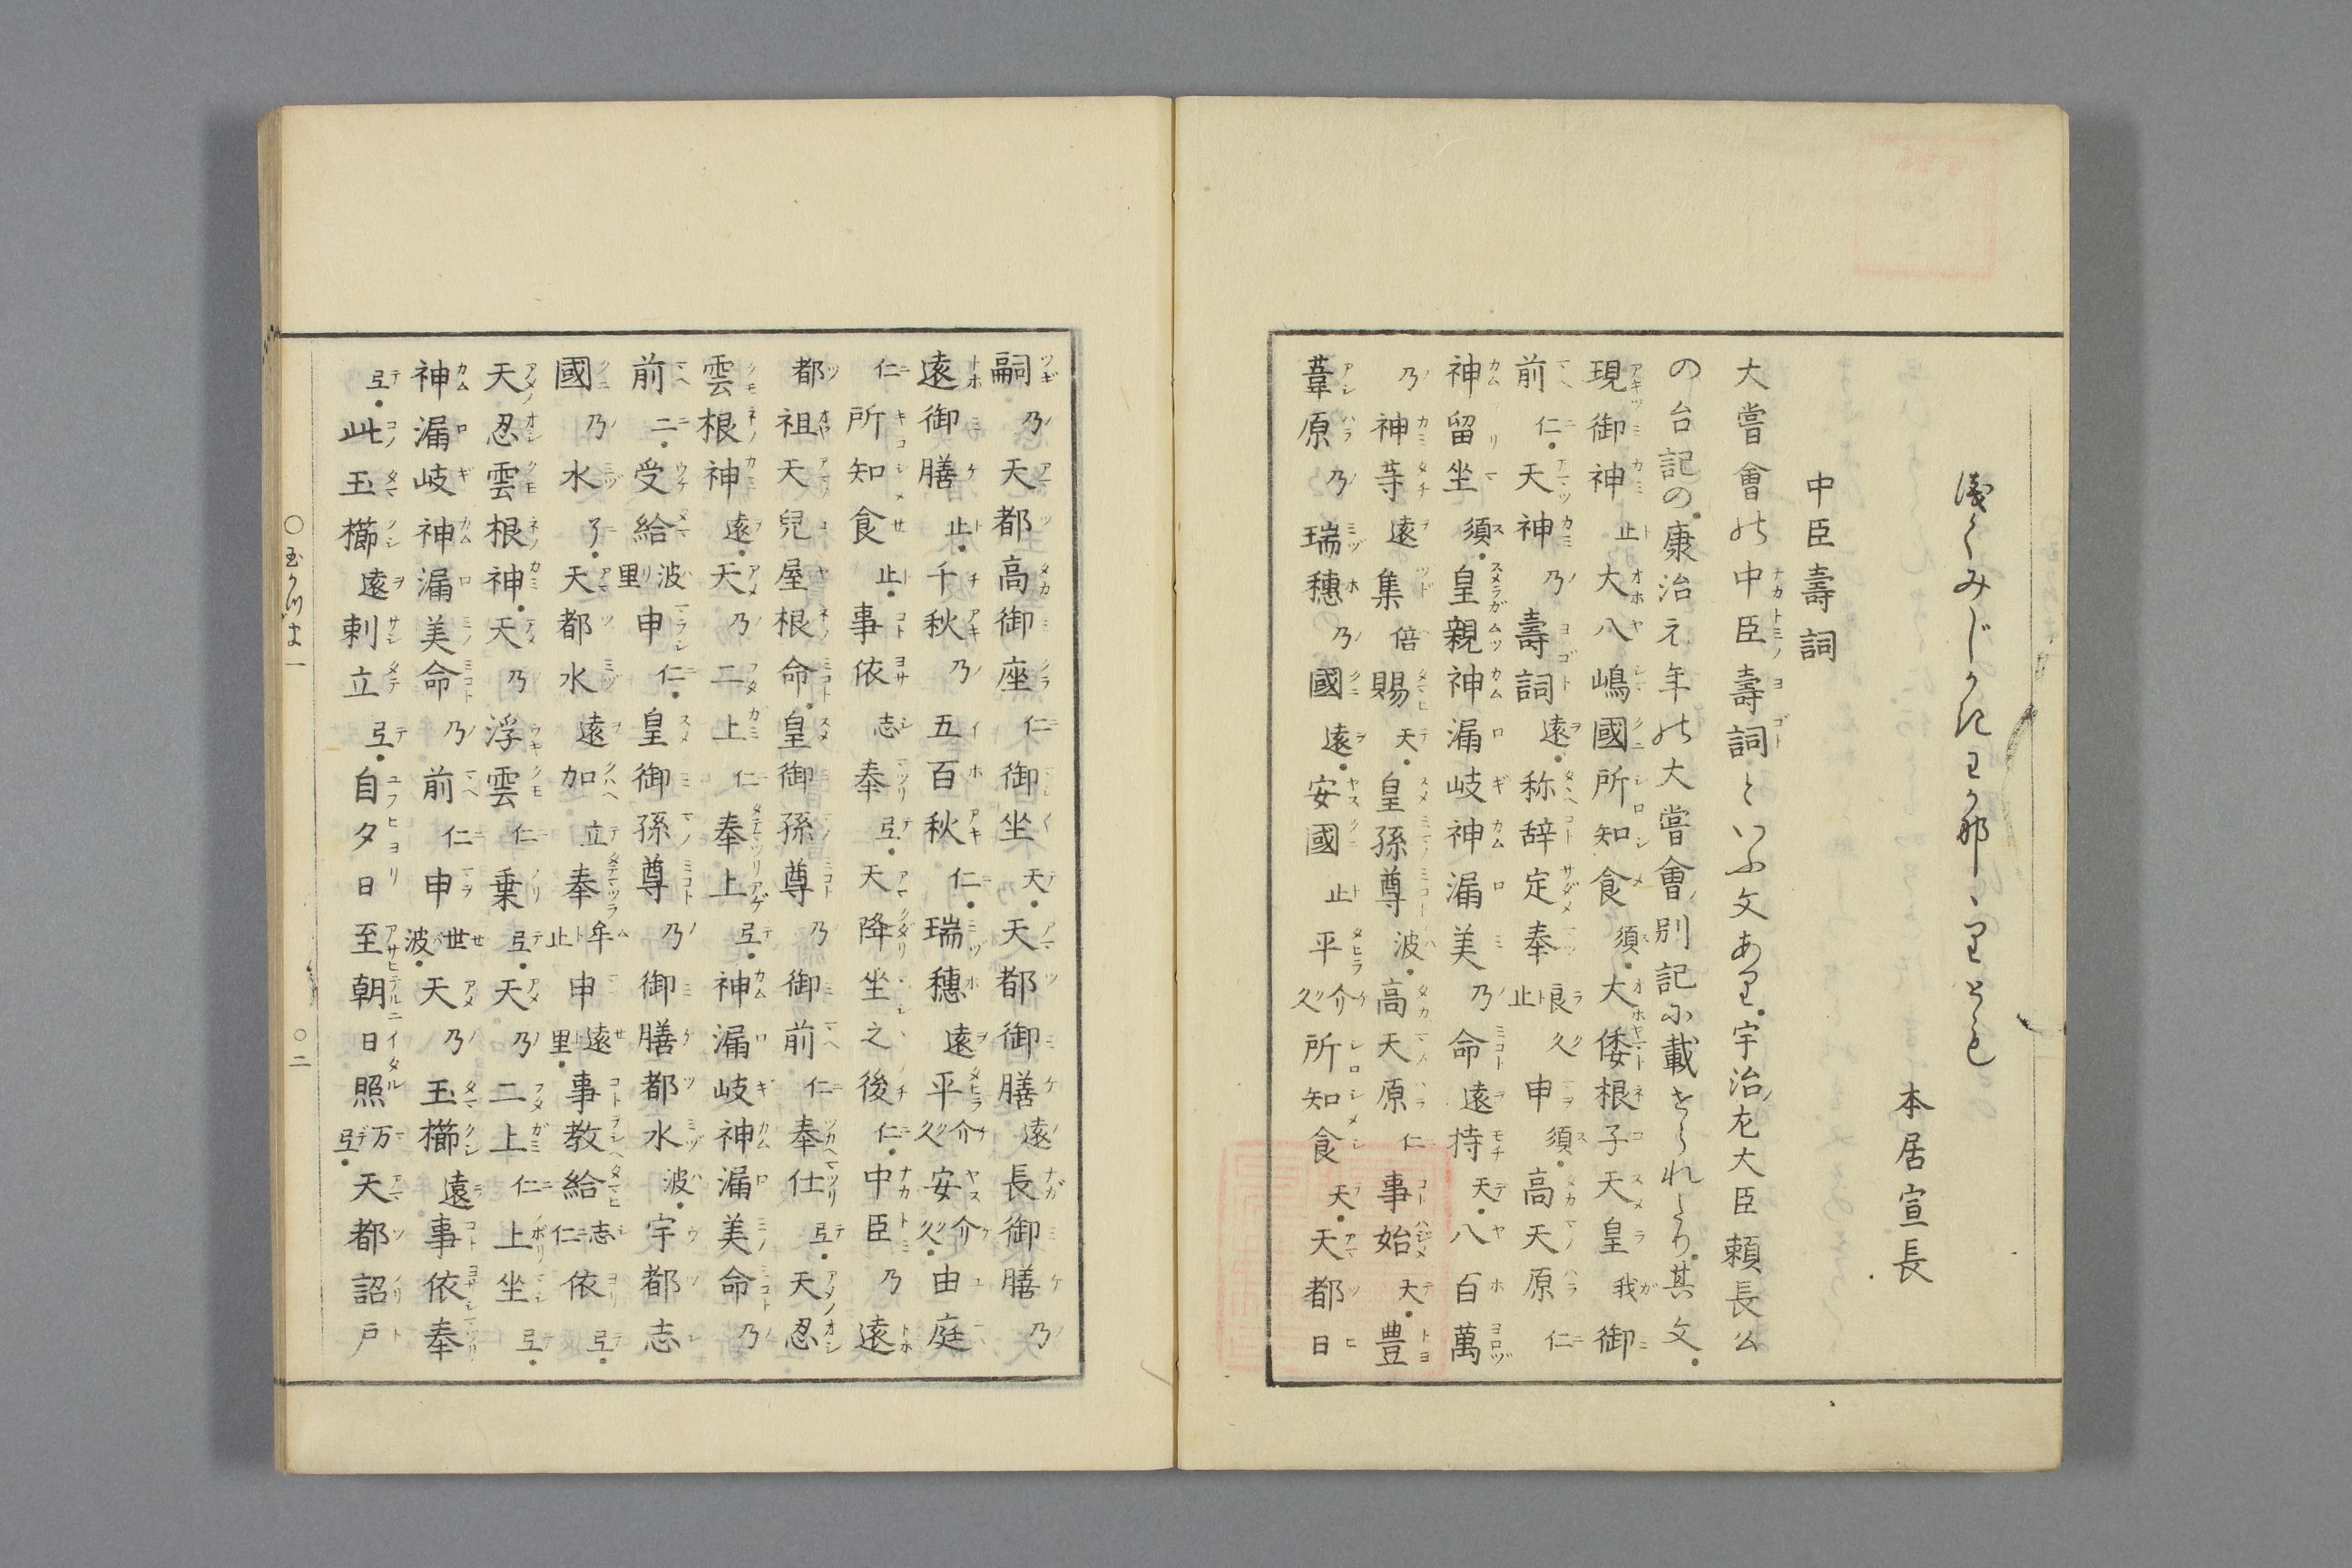 浅くみじかきわが那
本居宣長
中臣壽詞
大嘗會の中臣壽詞といふ文あり。宇治左大臣頼長公
の台記の。康治元年の大嘗會別記に載せられたり。其文。
現御神止大八嶋國所知食須。大倭根子天皇我御
前仁。天神乃壽詞遠。称辞定奉良久止申須。高天原仁
神留坐須。皇親神漏岐神漏美乃命遠持天。八百萬
乃神䓁遠集倍賜天。皇孫尊波。高天原仁事始天。豊
葦原乃瑞穗乃國遠。安國止平介久所知食天。天都日
嗣乃天都高御座仁御坐天。天都御膳遠長御膳乃
遠御膳止。千秋乃五百秋仁。瑞穗遠平介久安介久。由庭
仁所知食止。事依志奉弖。天降坐之後仁。中臣乃遠
都祖天兒屋根命。皇御孫尊乃御前仁奉仕弖。天忍
雲根神遠。天乃二上仁奉上弖。神漏岐神漏美命乃
前二。受給波里申仁。皇御孫尊乃御膳都水波。宇都志
國乃水了。天都水遠加立奉牟止申遠里。事教給志仁依弖。
天忍雲根神。天乃浮雲仁乗弖。天乃二上仁上坐弖。
神漏岐神漏美命乃前仁申世波。天乃玉櫛遠事依奉
弖。此玉櫛遠刺立弖。自夕日至朝日照万弖。天都詔戸
○玉かつま一
○二